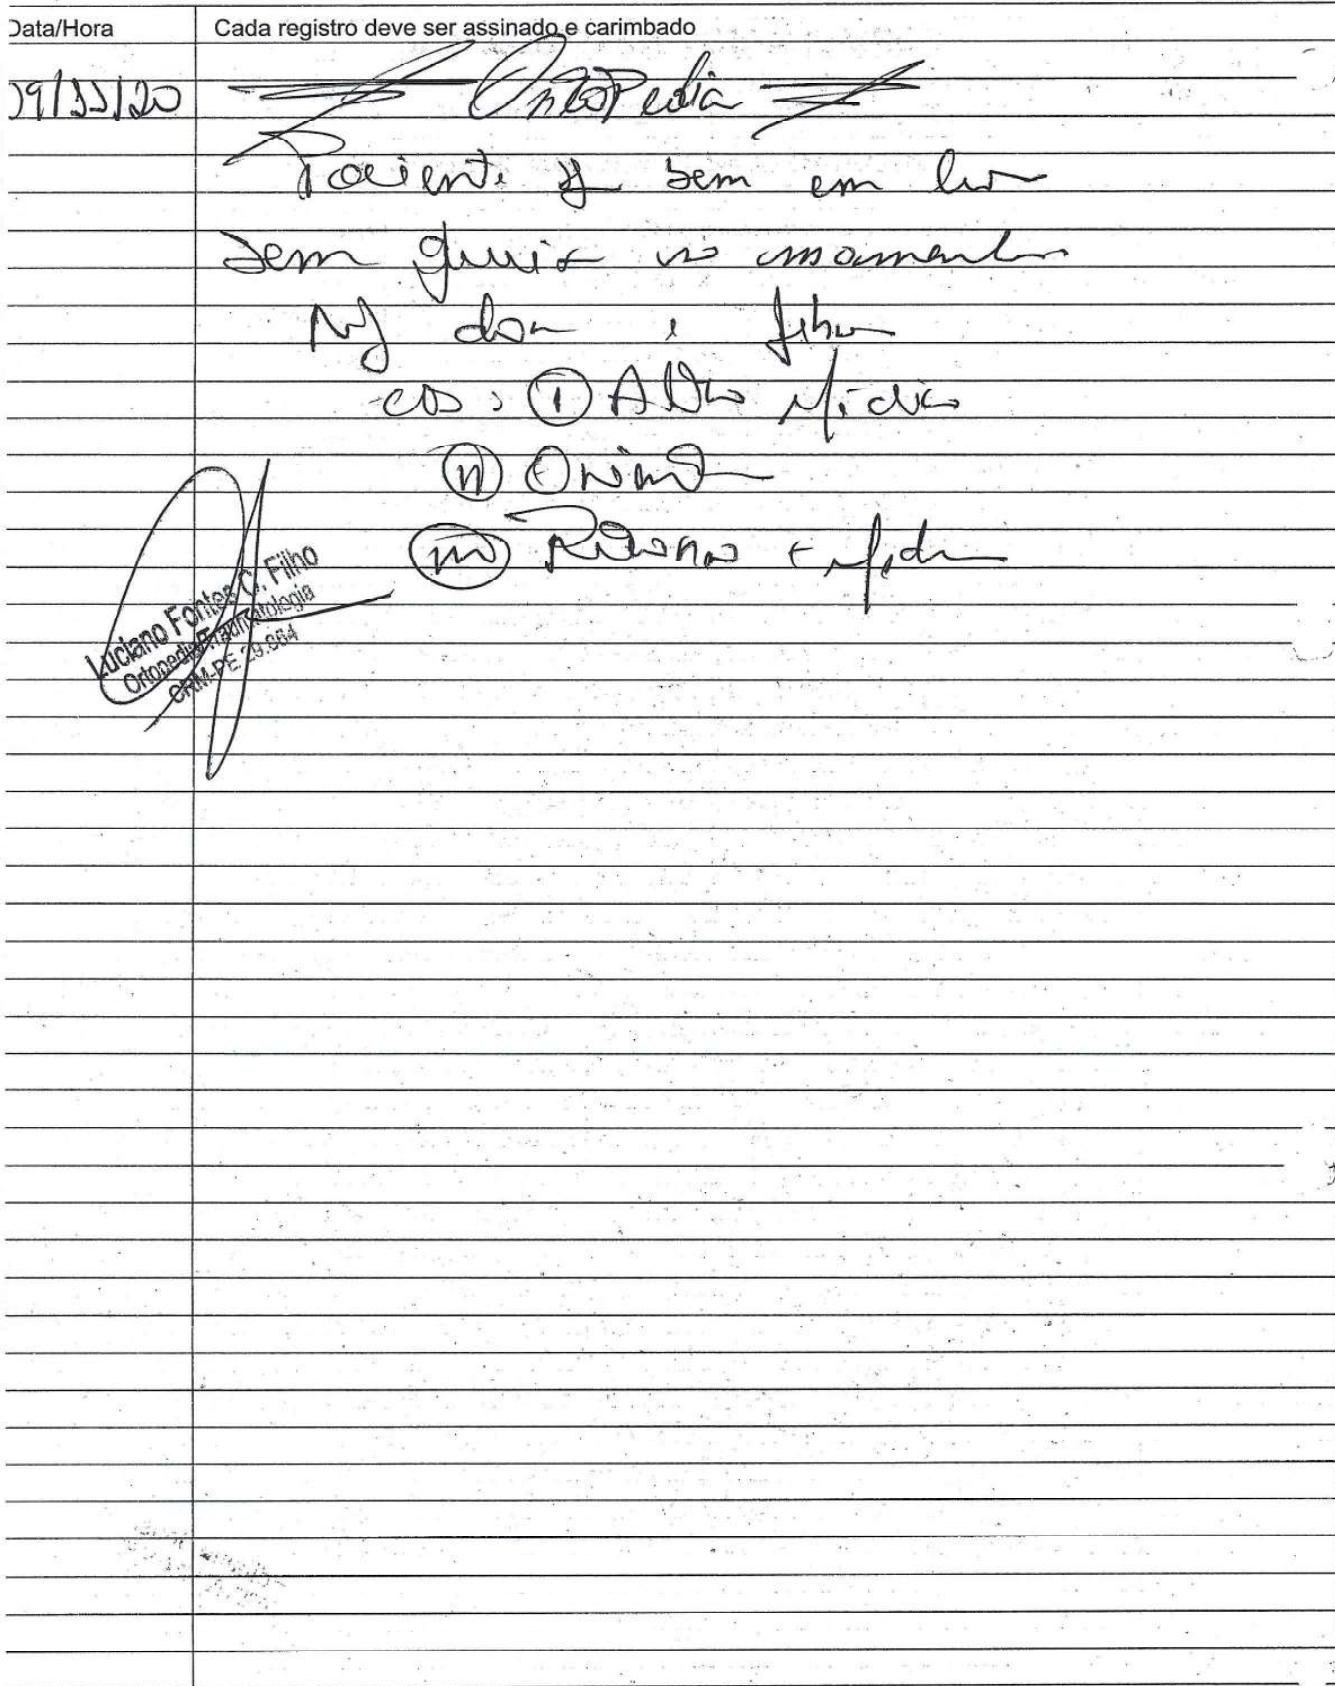 Data/Hora Cada registro deve ser assinado e carimbado
09/11/20 Ortopedia
Paciente bem em
sem queixa no momento
Nj dor e febre
CD: I Alta Médica
II Oriento
III Retorno +
Luciano Fontes C. Filho
Ortopedia Traumatologia
CRM-PE 29.